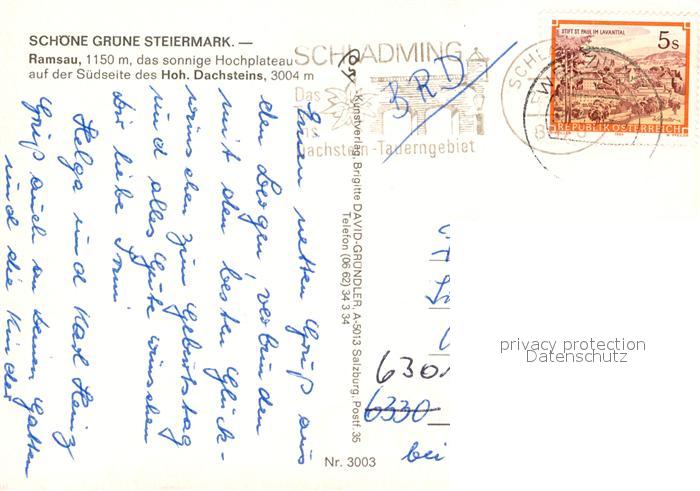 SCHÖNE GRÜNE STEIERMARK. —
Ramsau, 1150 m, das sonnige Hochplateau
auf der Südseite des Hoh. Dachsteins, 3004 m
SCHLADMING
Das
Dachstein-Tauerngebiet
BRD
STIFT ST. PAUL IM LAVANTTAL
5s
REPUBLIK ÖSTERREICH
Einen netten Gruß aus
den Bergen, verbunden
mit den besten Glück-
wünschen zum Geburtstag
und alles Gute wünschen
Dir liebe
Helga und Karl Heinz
Gruß auch an Deinen Gatten
und die Kinder
Kunstverlag, Brigitte DAVID-GRÜNDLER, A-5013 Salzburg, Postf. 35
Telefon (06 62) 34 3 34
630
6330
bei
Nr. 3003
privacy protection
Datenschutz